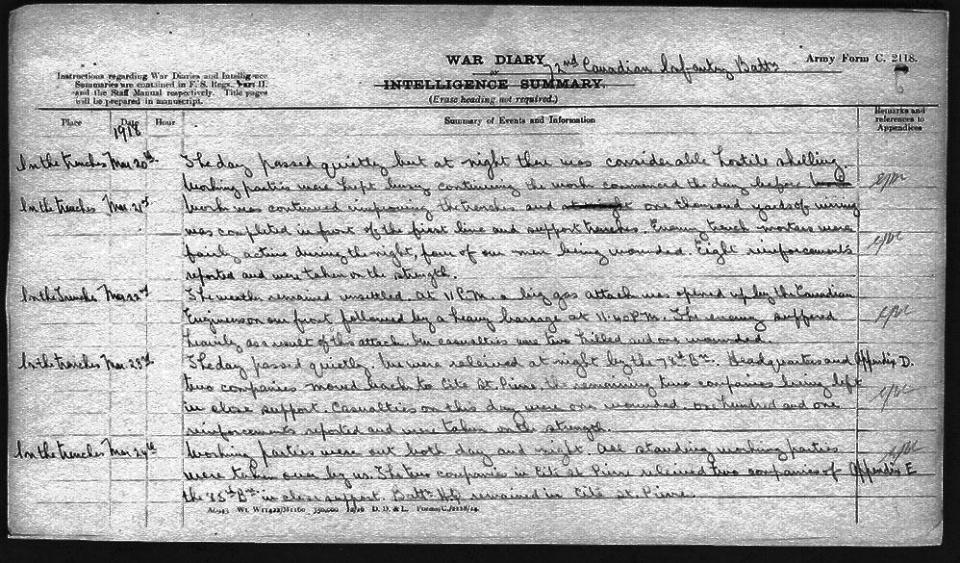 WAR DIARY 72nd Canadian Infantry Battn Army Form C. 2118.
or
INTELLIGENCE SUMMARY.
(Erase heading not required.)
Instructions regarding War Diaries and Intelligence
Summaries are contained in F. S. Regs., Part II.
and the Staff Manual respectively. Title pages
will be prepared in manuscript.
Place Date Hour Summary of Events and Information Remarks and references to Appendices
1918
In the trenches Mar 20th. The day passed quietly but at night there was considerable hostile shelling.
Working parties were kept busy continuing the work commenced the day before
In the trenches Mar 21st. Work was continued improving the trenches and one thousand yards of wiring
was completed in front of the first line and support trenches. Enemy trench mortars were
fairly active during the night, four of our men being wounded. Eight reinforcements
reported and were taken on the strength.
In the trenches Mar 22nd The weather remained unsettled. At 11 P.M. a big gas attack was opened up by the Canadian
Engineers on our front followed by a heavy barrage at 11.40 P.M. The enemy suffered
heavily as a result of this attack. Our casualties were two killed and one wounded.
In the trenches Mar. 23rd. The day passed quietly. We were relieved at night by the 78th Bn. Headquarters and Appendix D.
two companies moved back to Cite St. Pierre, the remaining two companies being left
in close support. Casualties on this day were one wounded. One hundred and one
reinforcements reported and were taken on the strength.
In the trenches Mar 24th Working parties were out both day and night. All standing working parties
were taken over by us. The two companies in Cite St Pierre relieved two companies of Appendix E
the 85th Bn in close support. Battn HQ remained in Cite St. Pierre
D. D. & L.